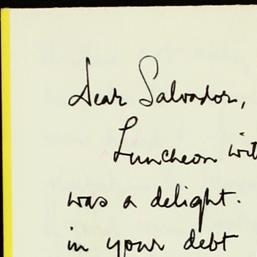 Dear Salvador,
Luncheon wit
was a delight.
in your debt